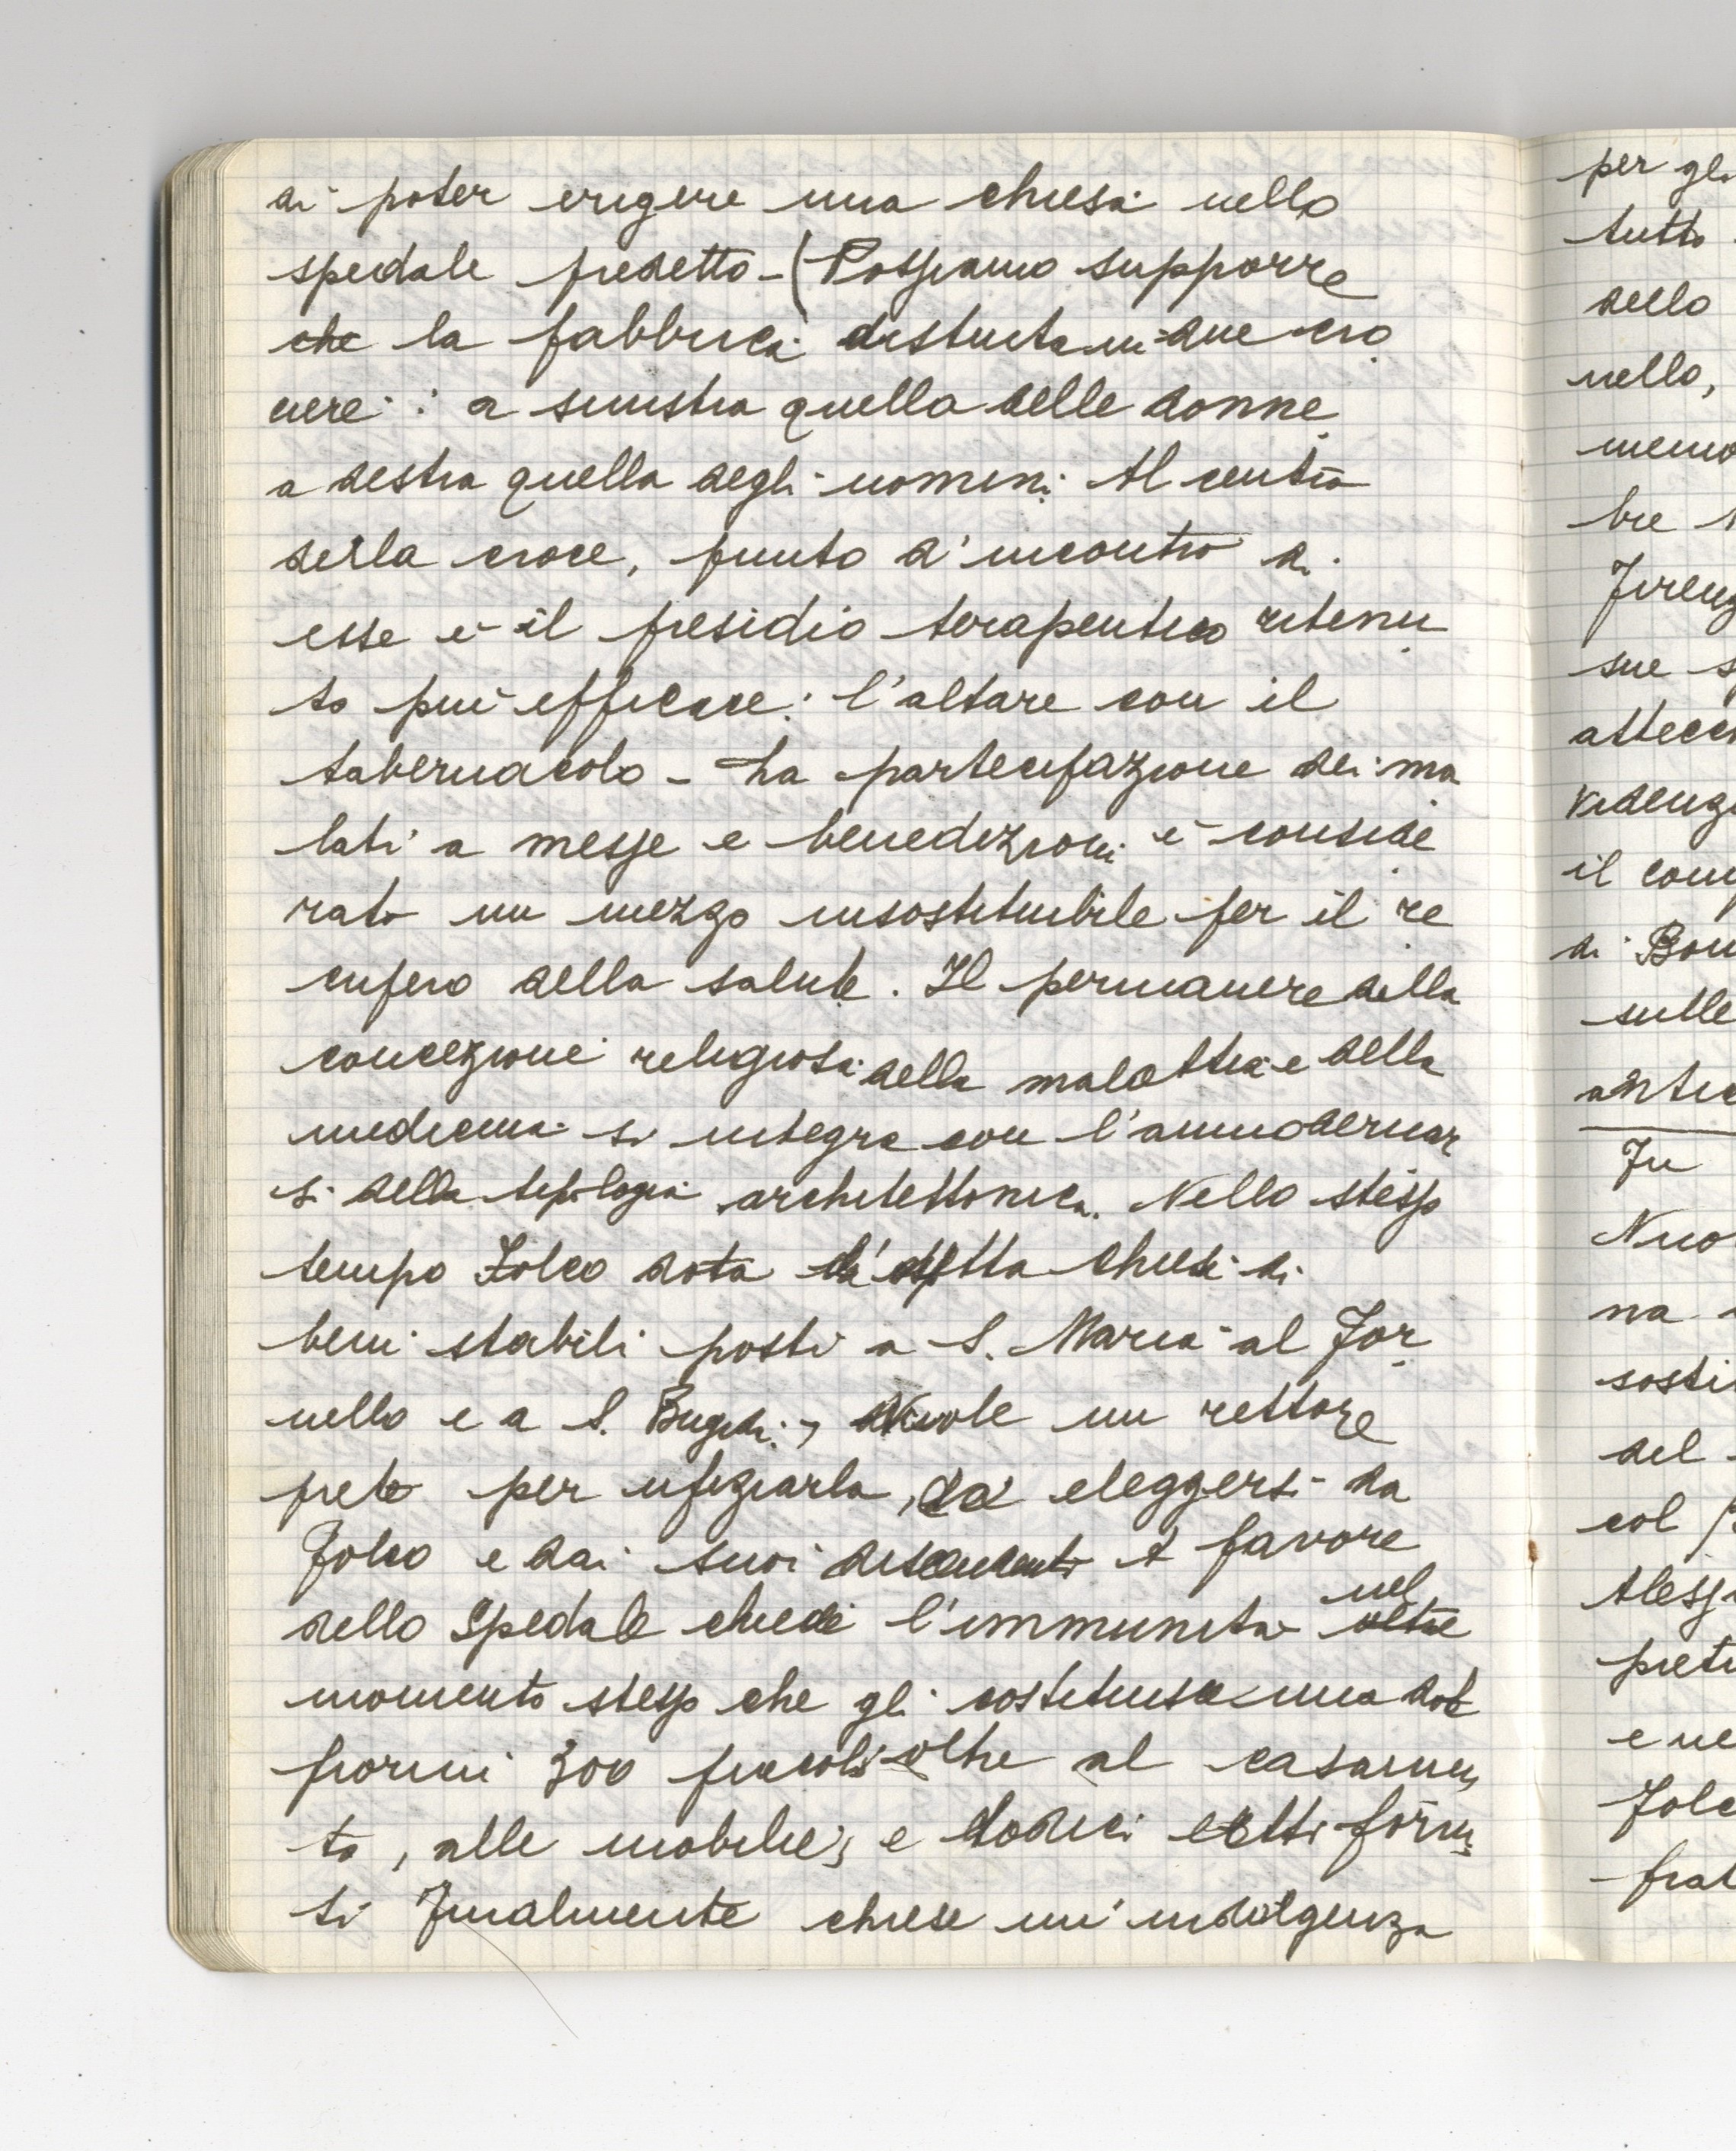 di poter erigere una chiesa nello
spedale predetto - (Possiamo supporre
che la fabbrica distinta in due cro
cere : a sinistra quella delle donne
a destra quella degli uomini Al centro
della croce, punto d'incontro di
esse è il presidio terapeutico ritenu
to più efficace: l'altare con il
tabernacolo - La partecipazione dei ma
lati a messe e benedizioni è conside
rato un mezzo insostituibile per il re
cupero della salute. Il permanere della
concezione religiosa della malattia e della
medicina si integra con l'ammodernar
si della tipologia architettonica. Nello stesso
tempo Folco dota detta chiesa di
beni stabili posti a S. Maria al For
nello e a S. , vuole un rettore
prete per ufiziarla, da eleggersi da
Folco e dai suoi discendenti A favore
dello Spedale chiede l'immunità nel
oltre
momento stesso che gli costituisce una dote
fiorini 300 piccoli oltre al casamen
to, alle mobilie, e dodici letti forni
ti Finalmente chiese un'indulgenza
per gli
tutto
dello
nello,
bre
Firenz
sue s
il com
di Bon
sulle
In
Nuo
na
sosti
del
col
Aless
e ne
Folc
frat